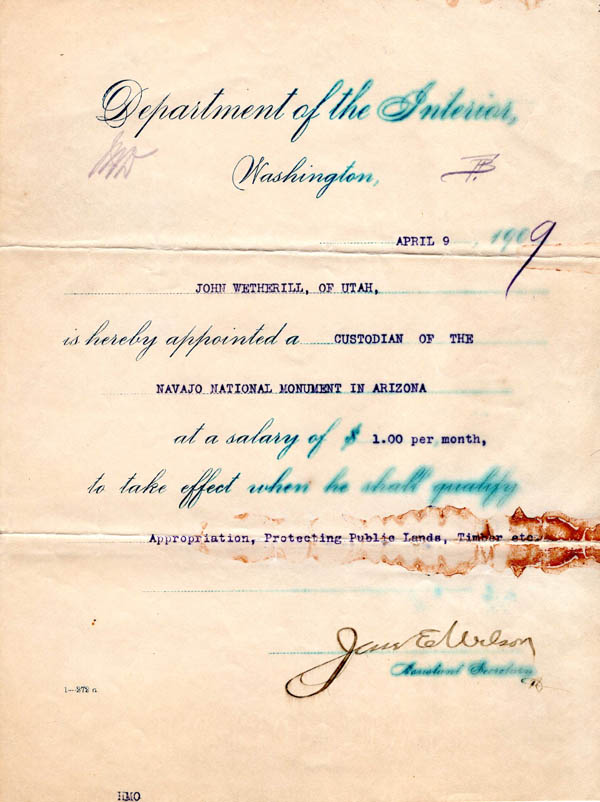 Department of the Interior,
Washington,
APRIL 9, 1909
JOHN WETHERILL, OF UTAH,
is hereby appointed a CUSTODIAN OF THE
NAVAJO NATIONAL MONUMENT IN ARIZONA
at a salary of $ 1.00 per month,
to take effect when he shall qualify
Appropriation, Protecting Public Lands, Timber etc.
Wilson
Assistant Secretary
1—272 a
HMO